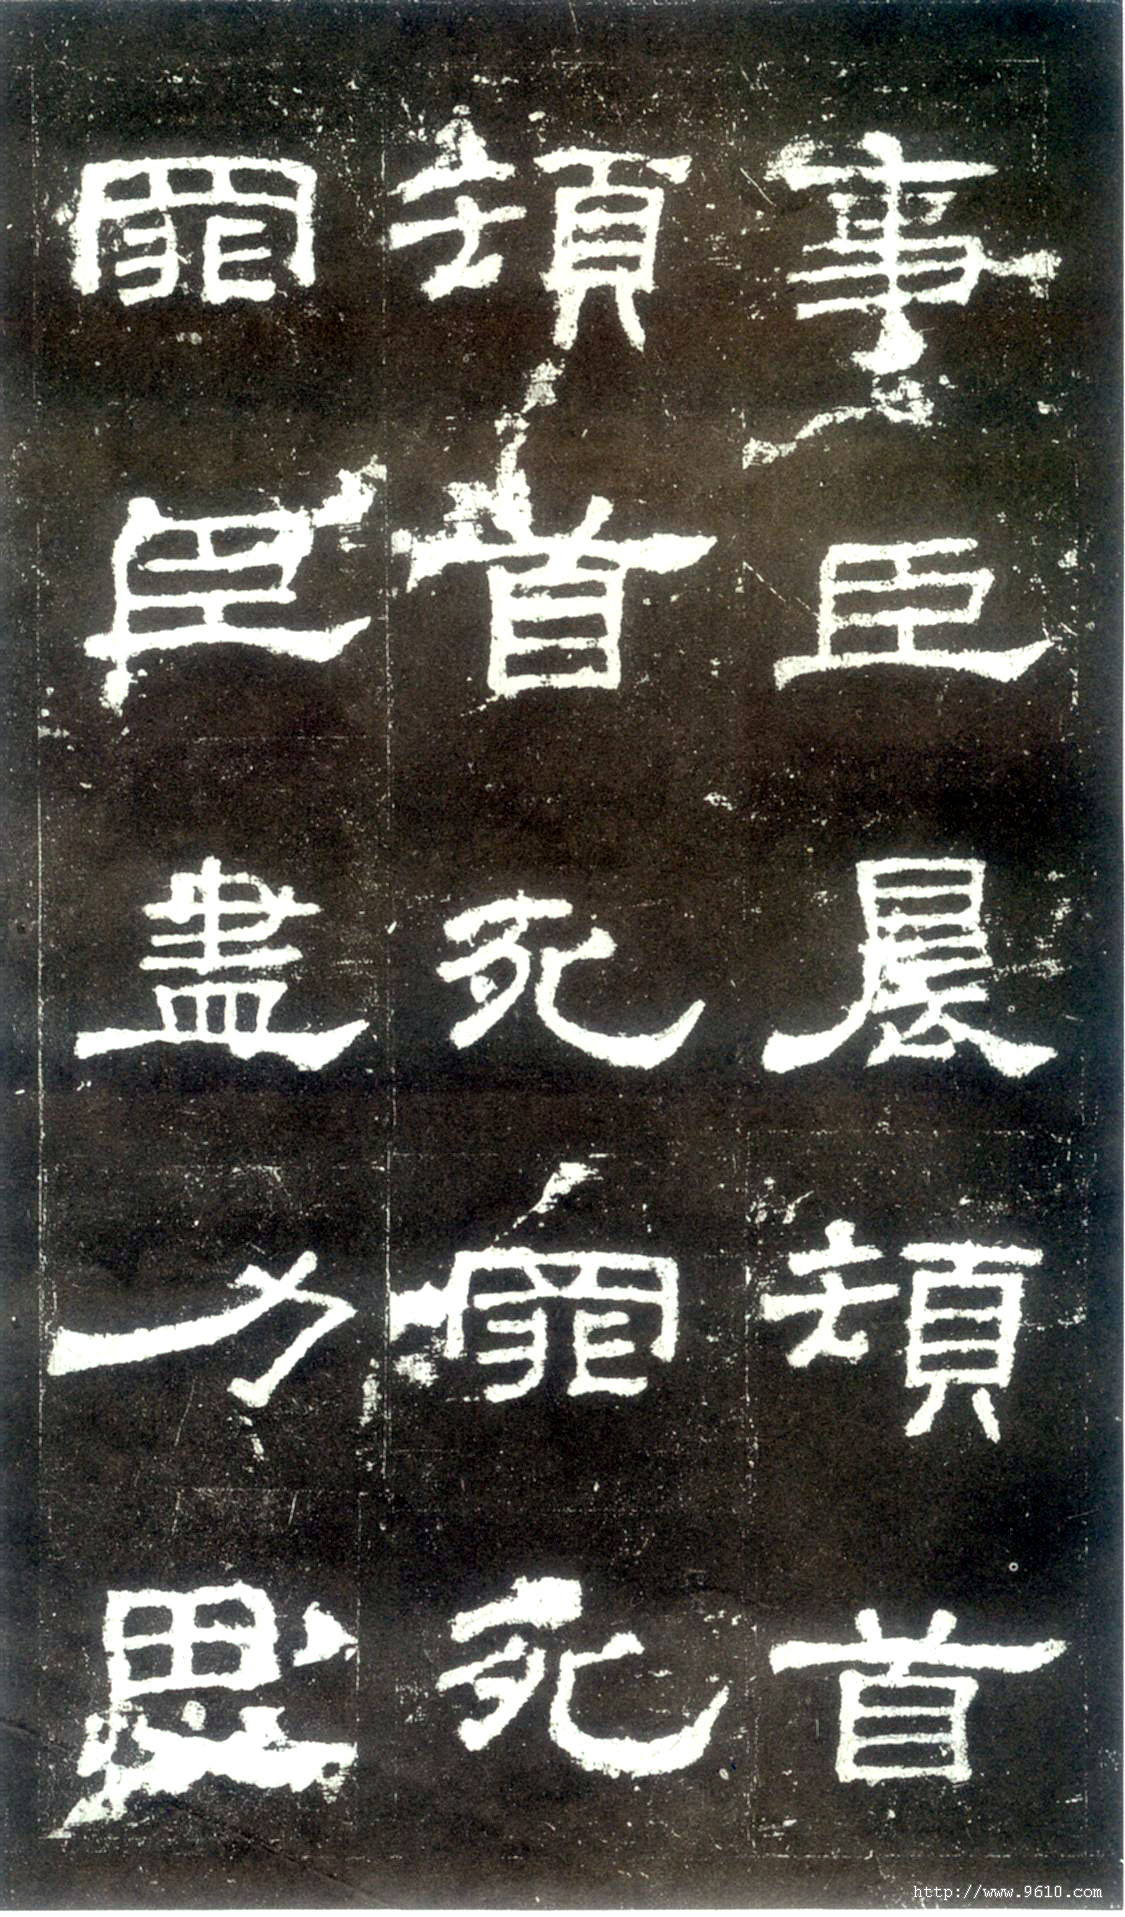 事臣晨頓首
頓首死罪死
罪臣盡力思
http://www.9610.com